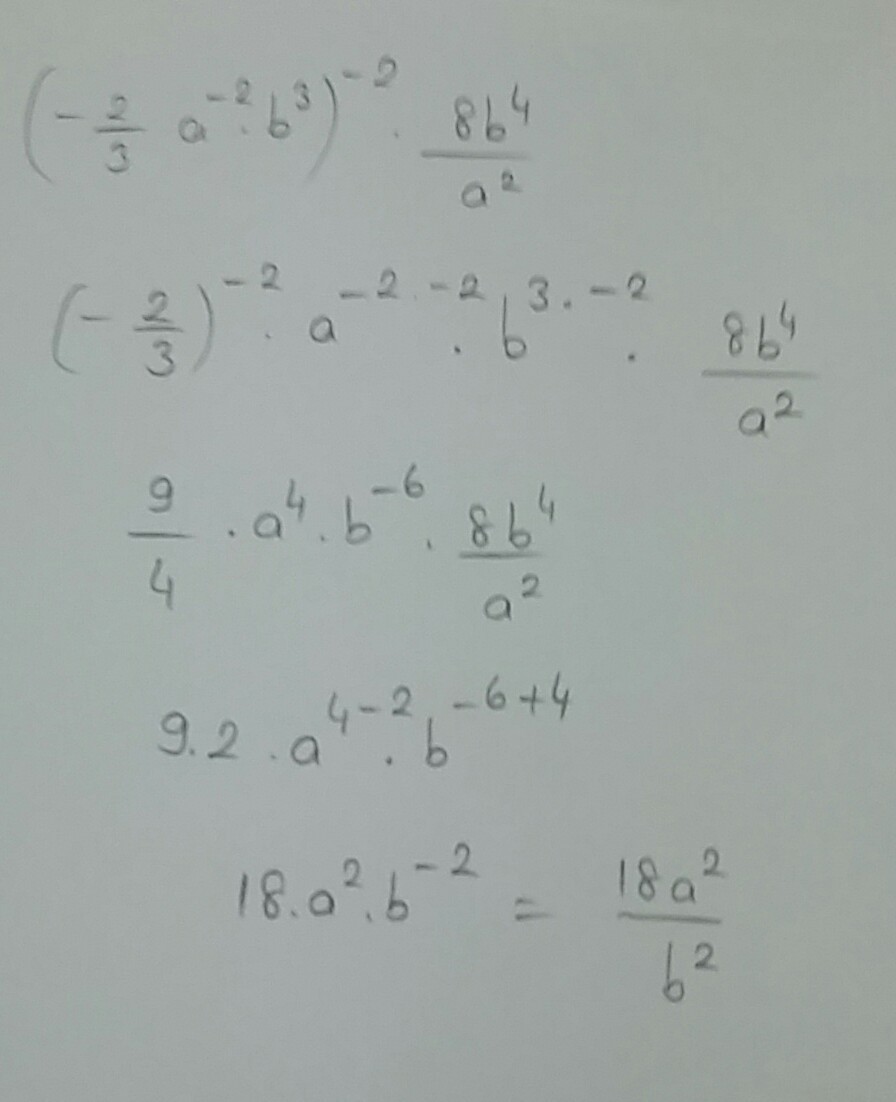 (-2/3 a^-2 . b^3)^-2 . 8b^4/a^2
(-2/3)^-2 . a^-2 . -2 . b^3 . -2 . 8b^4/a^2
9/4 . a^4 . b^-6 . 8b^4/a^2
9.2 . a^4-2 . b^-6+4
18.a^2.b^-2 = 18a^2/b^2